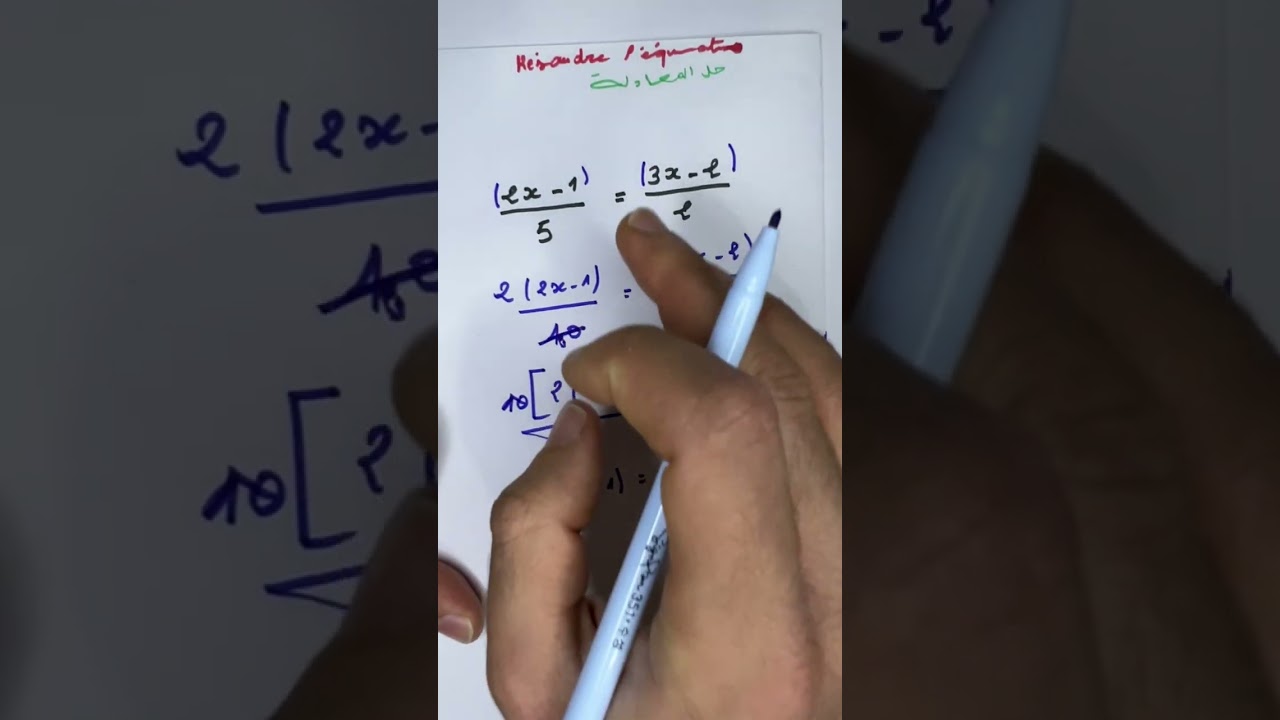 Résoudre l'équation
حل المعادلة
(2x - 1) = (3x - 2)
5 2
2 (2x - 1) = x - 2)
10
10 [ 2 (
1) =